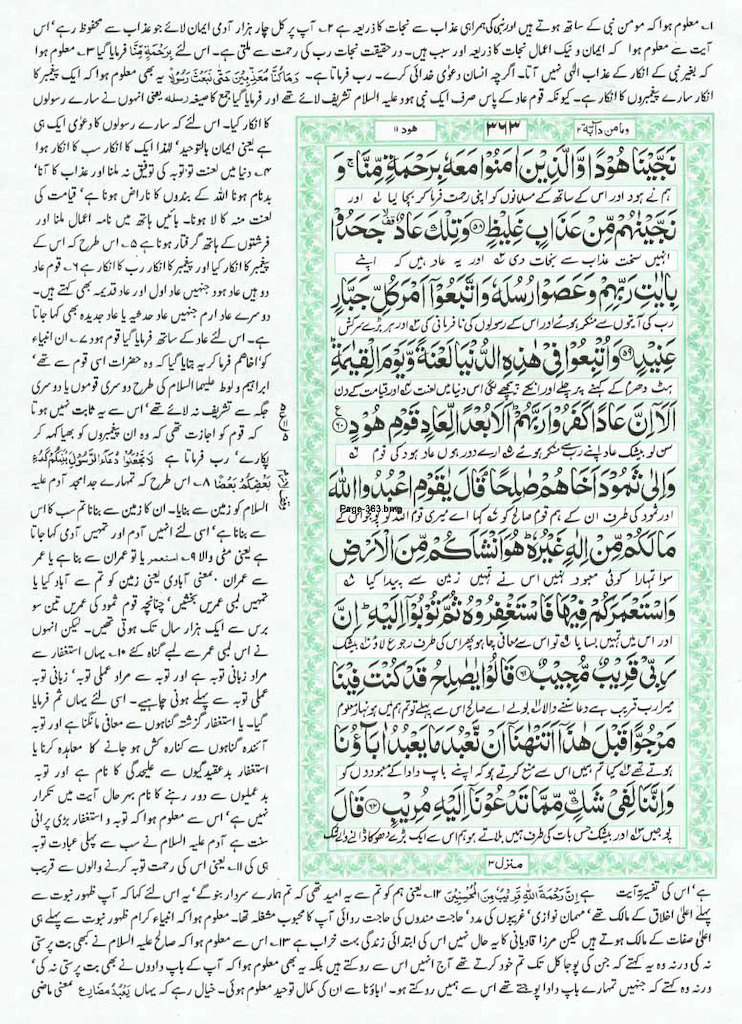 ۱؎ معلوم ہوا کہ مومن نبی کے ساتھ ہوتے ہیں اور نبی کی ہمراہی عذاب سے نجات کا ذریعہ ہے ۲؎ آپ پر کل چار ہزار آدمی ایمان لائے جو عذاب سے محفوظ رہے‘ اس
آیت سے معلوم ہوا کہ ایمان و نیک اعمال نجات کا ذریعہ اور سبب ہیں۔ درحقیقت نجات رب کی رحمت سے ملتی ہے۔ اس لئے بِرَحْمَةٍ مِّنَّا فرمایا گیا ۳؎ معلوم ہوا
کہ بغیر نبی کے انکار کے عذاب الٰہی نہیں آتا۔ اگرچہ انسان دعویٰ خدائی کرے۔ رب فرماتا ہے۔ وَمَا كُنَّا مُعَذِّبِيْنَ حَتّٰى نَبْعَثَ رَسُوْلًا یہ بھی معلوم ہوا کہ ایک پیغمبر کا
انکار سارے پیغمبروں کا انکار ہے۔ کیونکہ قوم عاد کے پاس صرف ایک نبی ہود علیہ السلام تشریف لائے تھے اور فرمایا گیا جمع کا صیغہ رسله یعنی انہوں نے سارے رسولوں
کا انکار کیا۔ اس لئے کہ سارے رسولوں کا دعویٰ ایک ہی
ہے یعنی ایمان بالتوحید‘ لہٰذا ایک کا انکار سب کا انکار ہوا
۴؎ دنیا میں لعنت تو توبہ کی توفیق نہ ملنا اور عذاب کا آنا‘
بدنام ہونا اللہ کے بندوں کا ناراض ہونا ہے‘ قیامت کی
لعنت منہ کالا ہونا۔ بائیں ہاتھ میں نامہ اعمال ملنا اور
فرشتوں کے ہاتھ گرفتار ہونا ہے ۵؎ اس طرح کہ اس کے
پیغمبر کا انکار کیا اور پیغمبر کا انکار رب کا انکار ہے ۶؎ قوم عاد
دو ہیں عاد ہود جنہیں عاد اول اور عاد قدیمہ بھی کہتے ہیں۔
دوسرے عاد ارم جنہیں عاد حدثیہ یا عاد جدیدہ بھی کہا جاتا
ہے۔ اس لئے عاد کے ساتھ فرمایا گیا قوم ہود ۷؎ ان انبیاء
کو اخاهم فرما کر یہ بتایا گیا کہ وہ حضرات اسی قوم سے تھے‘
ابراہیم و لوط علیہما السلام کی طرح دوسری قوموں یا دوسری
جگہ سے تشریف نہ لائے تھے‘ اس سے یہ ثابت نہیں ہوتا
کہ قوم کو اجازت تھی کہ وہ ان پیغمبروں کو بھیا کہہ کر
پکارے‘ رب فرماتا ہے لَا تَجْعَلُوْا دُعَآءَ الرَّسُوْلِ بَيْنَكُمْ كَدُعَآءِ
بَعْضِكُمْ بَعْضًا ۸؎ اس طرح کہ تمہارے جد امجد آدم علیہ
السلام کو زمین سے بنایا۔ ان کا زمین سے بنانا تم سب کا اس
سے بنانا ہے‘ اسی لئے انہیں آدم اور تمہیں آدمی کہا جاتا
ہے یعنی مٹی والا ۹؎ استعمر یا تو عمران سے بنا ہے یا عمر
سے عمران ‘ بمعنی آبادی یعنی زمین کو تم سے آباد کیا یا
تمہیں لمبی عمریں بخشیں‘ چنانچہ قوم ثمود کی عمریں تین سو
برس سے ایک ہزار سال تک ہوتی تھیں۔ لیکن انہوں
نے اس لمبی عمر سے لمبے گناہ کئے ۱۰؎ یہاں استغفار سے
مراد زبانی توبہ ہے اور توبہ سے مراد عملی توبہ‘ زبانی توبہ
عملی توبہ سے پہلے ہونی چاہیے۔ اسی لئے یہاں ثم فرمایا
گیا۔ یا استغفار گزشتہ گناہوں سے معافی مانگنا ہے اور توبہ
آئندہ گناہوں سے کنارہ کش ہو جانے کا معاہدہ کرنا یا
استغفار بدعقیدگیوں سے علیحدگی کا نام ہے اور توبہ
بدعملیوں سے دور رہنے کا نام بہر حال آیت میں تکرار
نہیں ہے‘ اس سے معلوم ہوا کہ توبہ و استغفار بڑی پرانی
سنت ہے آدم علیہ السلام نے سب سے پہلی عبادت توبہ
ہی کی ۱۱؎ یعنی اس کی رحمت توبہ کرنے والوں سے قریب
ومامن دآبة ۱۲
۳۶۳
هود ۱۱
نَجَّيْنَا هُوْدًا وَّالَّذِيْنَ اٰمَنُوْا مَعَهٗ بِرَحْمَةٍ مِّنَّا ۚ وَ
ہم نے ہود اور اس کے ساتھ کے مسلمانوں کو اپنی رحمت فرما کر بچا لیا اور
نَجَّيْنٰهُمْ مِّنْ عَذَابٍ غَلِيْظٍ ﴿۵۸﴾ وَتِلْكَ عَادٌ ۙ جَحَدُوْا
انہیں سخت عذاب سے نجات دی اور یہ عاد ہیں کہ اپنے
بِاٰيٰتِ رَبِّهِمْ وَعَصَوْا رُسُلَهٗ وَاتَّبَعُوْٓا اَمْرَ كُلِّ جَبَّارٍ
رب کی آیتوں سے منکر ہوئے اور اس کے رسولوں کی نافرمانی کی اور ہر بڑے سرکش
عَنِيْدٍ ﴿۵۹﴾ وَاُتْبِعُوْا فِيْ هٰذِهِ الدُّنْيَا لَعْنَةً وَّيَوْمَ الْقِيٰمَةِ ؕ
ہٹ دھرم کے کہنے پر چلے اور انکے پیچھے لگی اس دنیا میں لعنت اور قیامت کے دن
اَلَآ اِنَّ عَادًا كَفَرُوْا رَبَّهُمْ ؕ اَلَا بُعْدًا لِّعَادٍ قَوْمِ هُوْدٍ ﴿۶۰﴾
سن لو بیشک عاد اپنے رب سے منکر ہوئے ارے دور ہوں عاد ہود کی قوم
وَاِلٰى ثَمُوْدَ اَخَاهُمْ صٰلِحًا ۘ قَالَ يٰقَوْمِ اعْبُدُوا اللّٰهَ
اور ثمود کی طرف ان کے ہم قوم صالح کو کہا اے میری قوم اللہ کو پوجو اس کے
Page-363.bmp
مَا لَكُمْ مِّنْ اِلٰهٍ غَيْرُهٗ ؕ هُوَ اَنْشَاَكُمْ مِّنَ الْاَرْضِ
سوا تمہارا کوئی معبود نہیں اس نے تمہیں زمین سے پیدا کیا
وَاسْتَعْمَرَكُمْ فِيْهَا فَاسْتَغْفِرُوْهُ ثُمَّ تُوْبُوْٓا اِلَيْهِ ؕ اِنَّ
اور اس میں تمہیں بسایا تو اس سے معافی چاہو پھر اس کی طرف رجوع لاؤ بیشک
رَبِّيْ قَرِيْبٌ مُّجِيْبٌ ﴿۶۱﴾ قَالُوْا يٰصٰلِحُ قَدْ كُنْتَ فِيْنَا
میرا رب قریب ہے دعا سننے والا بولے اے صالح اس سے پہلے تو تم ہم میں ہونہار معلوم
مَرْجُوًّا قَبْلَ هٰذَآ اَتَنْهٰنَآ اَنْ نَّعْبُدَ مَا يَعْبُدُ اٰبَآؤُنَا
ہوتے تھے کیا تم ہمیں اس سے منع کرتے ہو کہ اپنے باپ دادا کے معبودوں کو
وَاِنَّنَا لَفِيْ شَكٍّ مِّمَّا تَدْعُوْنَآ اِلَيْهِ مُرِيْبٍ ﴿۶۲﴾ قَالَ
پوجیں اور بیشک جس بات کی طرف ہمیں بلاتے ہو ہم اس سے ایک بڑے دھوکا ڈالنے والے شک
منزل ۳
ہے‘ اس کی تفسیر آیت ہے اِنَّ رَحْمَةَ اللّٰهِ قَرِيْبٌ مِّنَ الْمُحْسِنِيْنَ ۱۲؎ یعنی ہم کو تم سے یہ امید تھی کہ تم ہمارے سردار بنو گے‘ یہ اس لئے کہا کہ آپ ظہور نبوت سے
پہلے اعلیٰ اخلاق کے مالک تھے‘ مہمان نوازی‘ غریبوں کی مدد‘ حاجت مندوں کی حاجت روائی آپ کا محبوب مشغلہ تھا۔ معلوم ہوا کہ انبیاء کرام ظہور نبوت سے پہلے ہی
اعلیٰ صفات کے مالک ہوتے ہیں لیکن مرزا قادیانی کا یہ حال نہیں اس کی ابتدائی زندگی بہت خراب ہے ۱۳؎ اس سے معلوم ہوا کہ صالح علیہ السلام نے کبھی بت پرستی
نہ کی ورنہ وہ یہ کہتے کہ جن کی پوجا کل تک تم خود کرتے تھے آج انہیں اس سے روکتے ہیں بلکہ یہ بھی معلوم ہوا کہ آپ کے باپ دادوں نے بھی بت پرستی نہ کی‘
ورنہ وہ کہتے کہ جنہیں تمہارے باپ دادا پوجتے تھے اس سے ہمیں روکتے ہو۔ ’اباؤنا سے ان کی کمال توحید معلوم ہوئی۔ خیال رہے کہ یہاں يَعْبُدُ مضارع بمعنی ماضی